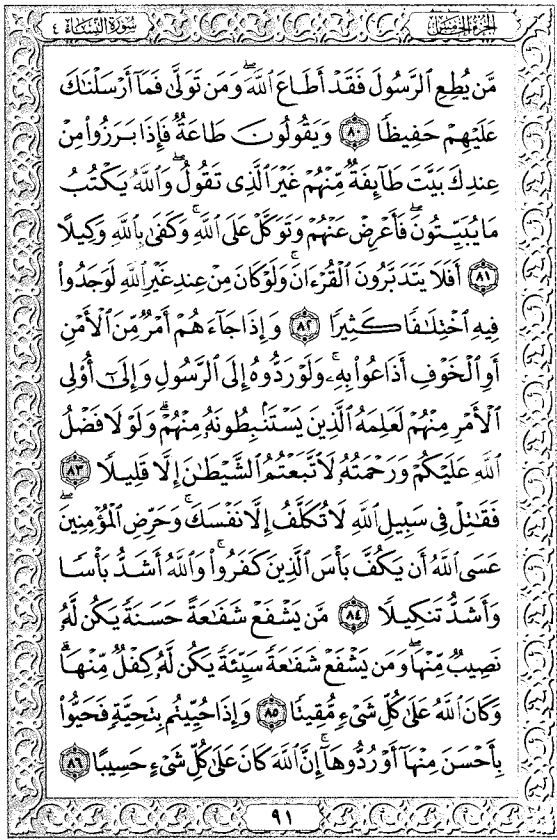 سورة النساء ٤
الجزء الخامس
مَّن يُطِعِ ٱلرَّسُولَ فَقَدْ أَطَاعَ ٱللَّهَۖ وَمَن تَوَلَّىٰ فَمَآ أَرْسَلْنَٰكَ
عَلَيْهِمْ حَفِيظًا ٨٠ وَيَقُولُونَ طَاعَةٌۖ فَإِذَا بَرَزُوا۟ مِنْ
عِندِكَ بَيَّتَ طَآئِفَةٌ مِّنْهُمْ غَيْرَ ٱلَّذِى تَقُولُۖ وَٱللَّهُ يَكْتُبُ
مَا يُبَيِّتُونَۖ فَأَعْرِضْ عَنْهُمْ وَتَوَكَّلْ عَلَى ٱللَّهِۚ وَكَفَىٰ بِٱللَّهِ وَكِيلًا
٨١ أَفَلَا يَتَدَبَّرُونَ ٱلْقُرْءَانَۚ وَلَوْ كَانَ مِنْ عِندِ غَيْرِ ٱللَّهِ لَوَجَدُوا۟
فِيهِ ٱخْتِلَٰفًا كَثِيرًا ٨٢ وَإِذَا جَآءَهُمْ أَمْرٌ مِّنَ ٱلْأَمْنِ
أَوِ ٱلْخَوْفِ أَذَاعُوا۟ بِهِۦۖ وَلَوْ رَدُّوهُ إِلَى ٱلرَّسُولِ وَإِلَىٰٓ أُو۟لِى
ٱلْأَمْرِ مِنْهُمْ لَعَلِمَهُ ٱلَّذِينَ يَسْتَنۢبِطُونَهُۥ مِنْهُمْۗ وَلَوْلَا فَضْلُ
ٱللَّهِ عَلَيْكُمْ وَرَحْمَتُهُۥ لَٱتَّبَعْتُمُ ٱلشَّيْطَٰنَ إِلَّا قَلِيلًا ٨٣
فَقَٰتِلْ فِى سَبِيلِ ٱللَّهِ لَا تُكَلَّفُ إِلَّا نَفْسَكَۚ وَحَرِّضِ ٱلْمُؤْمِنِينَۖ
عَسَى ٱللَّهُ أَن يَكُفَّ بَأْسَ ٱلَّذِينَ كَفَرُوا۟ۚ وَٱللَّهُ أَشَدُّ بَأْسًا
وَأَشَدُّ تَنكِيلًا ٨٤ مَّن يَشْفَعْ شَفَٰعَةً حَسَنَةً يَكُن لَّهُۥ
نَصِيبٌ مِّنْهَاۖ وَمَن يَشْفَعْ شَفَٰعَةً سَيِّئَةً يَكُن لَّهُۥ كِفْلٌ مِّنْهَاۗ
وَكَانَ ٱللَّهُ عَلَىٰ كُلِّ شَىْءٍ مُّقِيتًا ٨٥ وَإِذَا حُيِّيتُم بِتَحِيَّةٍ فَحَيُّوا۟
بِأَحْسَنَ مِنْهَآ أَوْ رُدُّوهَآۗ إِنَّ ٱللَّهَ كَانَ عَلَىٰ كُلِّ شَىْءٍ حَسِيبًا ٨٦
٩١